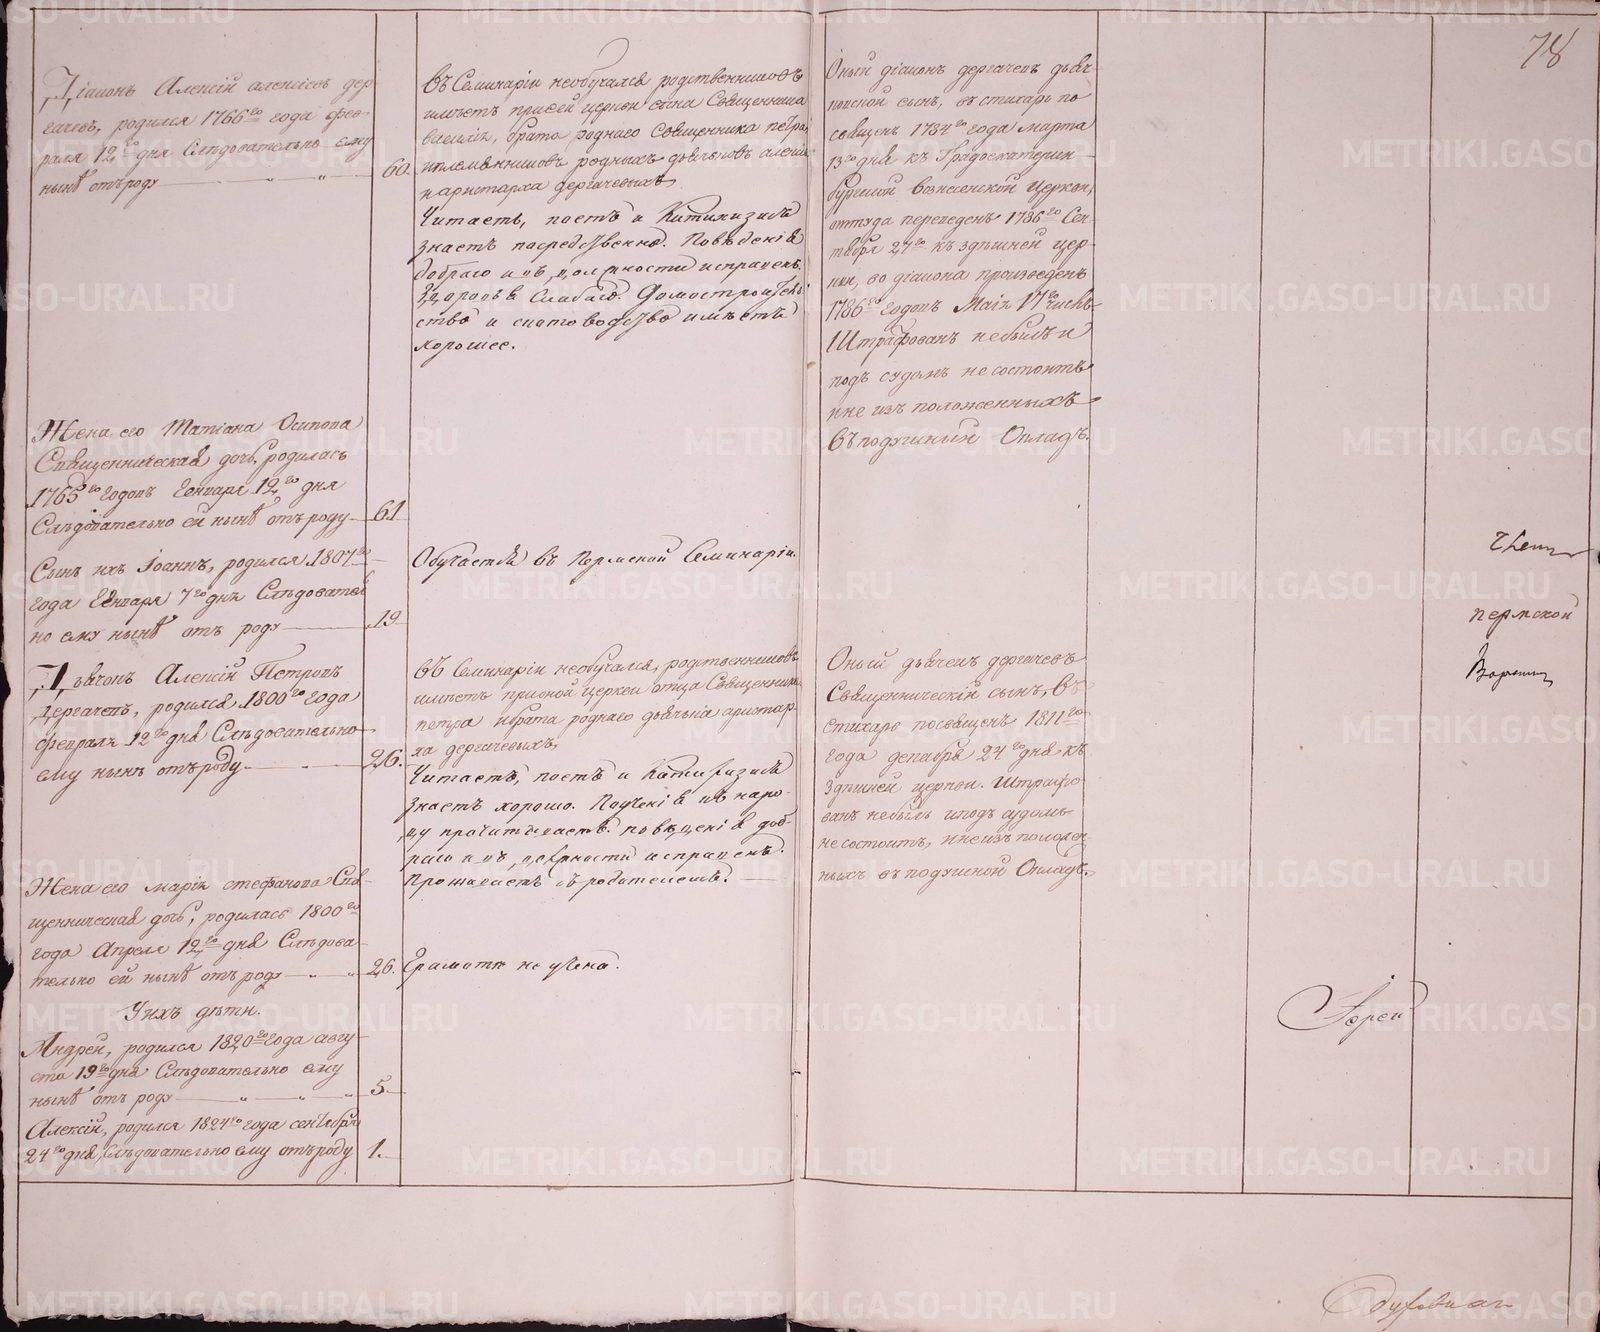 78
Діаконъ Алексій алексіевъ дер-
гачевъ, родился 1766го года фев-
раля 12го дня Слѣдовательно ему
нынѣ отъ роду 60.
въ Семинаріи необучался родственниковъ
имѣетъ присей церкви сына Священника
василія, брата роднаго священника петра,
иплемянниковъ родныхъ дьячковъ алексія
и аристарха дергачевыхъ
Читаетъ, поетъ и Катихизисъ
знаетъ посредственно. Поведенія
добраго и въ должности исправенъ.
Здоровья Слабаго. Домостроитель-
ство и скотоводство имѣетъ
хорошее.
Оный діаконъ дергачевъ дьяч-
ковской сынъ, въ стихарь по
священъ 1784го года марта
13го дня къ Градоекатерин-
бургской вознесенской Церкви,
оттуда переведенъ 1786го Сен-
тября 27го къ здѣшней цер-
кви, во діакона произведенъ
1786го годовъ Маія 17го числа
Штрафованъ небылъ и
подъ судомъ не состоитъ
ине изъ положенныхъ
въ подушный Окладъ.
Жена его Татіана Осипова
Священническая дочь, родилась
1765го годовъ Генваря 12го дня
Слѣдовательно ей нынѣ отъ роду 61
Сынъ ихъ Іоаннъ, родился 1807го
года Генваря 7го дня Слѣдователь
но ему нынѣ отъ роду 19
Обучается въ Пермской Семинаріи.
Дьячокъ Алексій Петровъ
Дергачевъ, родился 1800го года
февраля 12го дня Слѣдовательно
ему нынѣ отъ роду 26.
въ Семинаріи необучался, родственниковъ
имѣетъ прионой церкви отца Священника
петра ибрата роднаго дьячька аристар-
ха дергачевыхъ,
Читаетъ, поетъ и Катихизисъ
знаетъ хорошо. Поученія къ наро-
ду прочитываетъ. поведенія доб-
раго и въ должности исправенъ.
Проживаетъ съ родителемъ.
Оный дьячекъ дергачевъ
Священническій сынъ, въ
стихарь посвященъ 1811го
года декабря 24го дня къ
Здѣшней церкви. Штрафо
ванъ небылъ иподъ судомъ
не состоитъ, ине изъ положен
ныхъ въ подушной Окладъ.
Жена его марія стефанова Свя-
щенническая дочь, родилась 1800го
года Апреля 12го дня Слѣдова-
тельно ей нынѣ отъ роду 26.
Грамоте не учена.
Уихъ дѣти.
Андрей, родился 1820го года авгу-
ста 19го дня Слѣдовательно ему
нынѣ отъ роду 5
Алексій, родился 1824го года сентября
24го дня, Слѣдовательно ему отъ роду 1.
член
пермской
Іерей
Духовнаг
METRIKI.GASO-URAL.RU